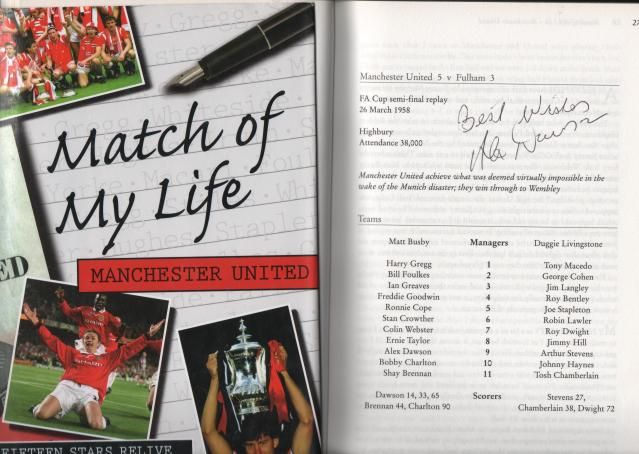 Match of
My Life
MANCHESTER UNITED
FIFTEEN STARS RELIVE
27
Manchester United 5 v Fulham 3
FA Cup semi-final replay
26 March 1958
Best Wishes
Alex Dawson
Highbury
Attendance 38,000
Manchester United achieve what was deemed virtually impossible in the
wake of the Munich disaster; they win through to Wembley
Teams
Matt Busby Managers Duggie Livingstone
Harry Gregg 1 Tony Macedo
Bill Foulkes 2 George Cohen
Ian Greaves 3 Jim Langley
Freddie Goodwin 4 Roy Bentley
Ronnie Cope 5 Joe Stapleton
Stan Crowther 6 Robin Lawler
Colin Webster 7 Roy Dwight
Ernie Taylor 8 Jimmy Hill
Alex Dawson 9 Arthur Stevens
Bobby Charlton 10 Johnny Haynes
Shay Brennan 11 Tosh Chamberlain
Dawson 14, 33, 65 Scorers Stevens 27,
Brennan 44, Charlton 90 Chamberlain 38, Dwight 72